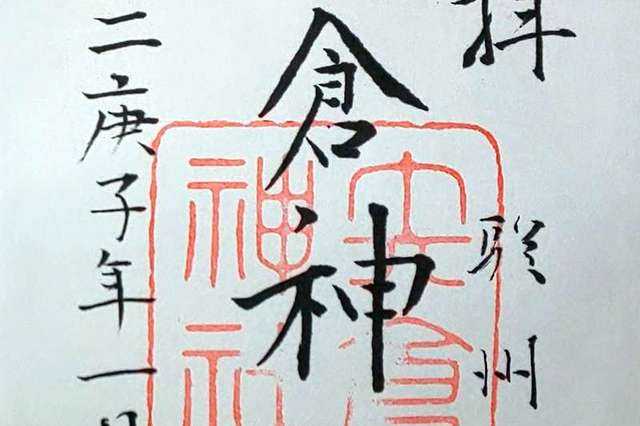 拝
駿州
倉神
二庚子年一月
神社